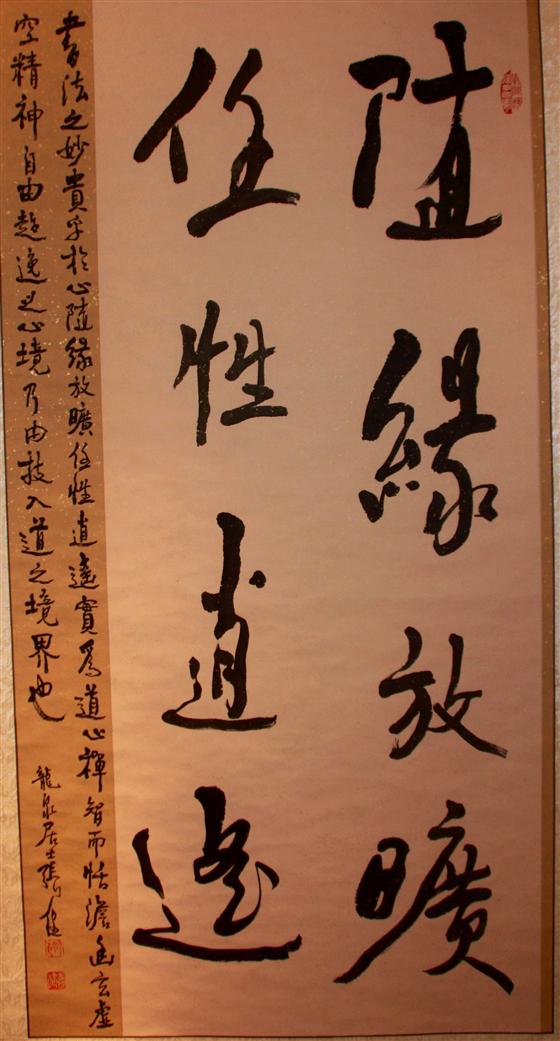 隨緣放曠
任性逍遙
書法之妙貴乎於心隨緣放曠任性逍遙實為道心禪智而恬澹幽玄虛
空精神自由超逸之心境乃由技入道之境界也
龍泉居士張